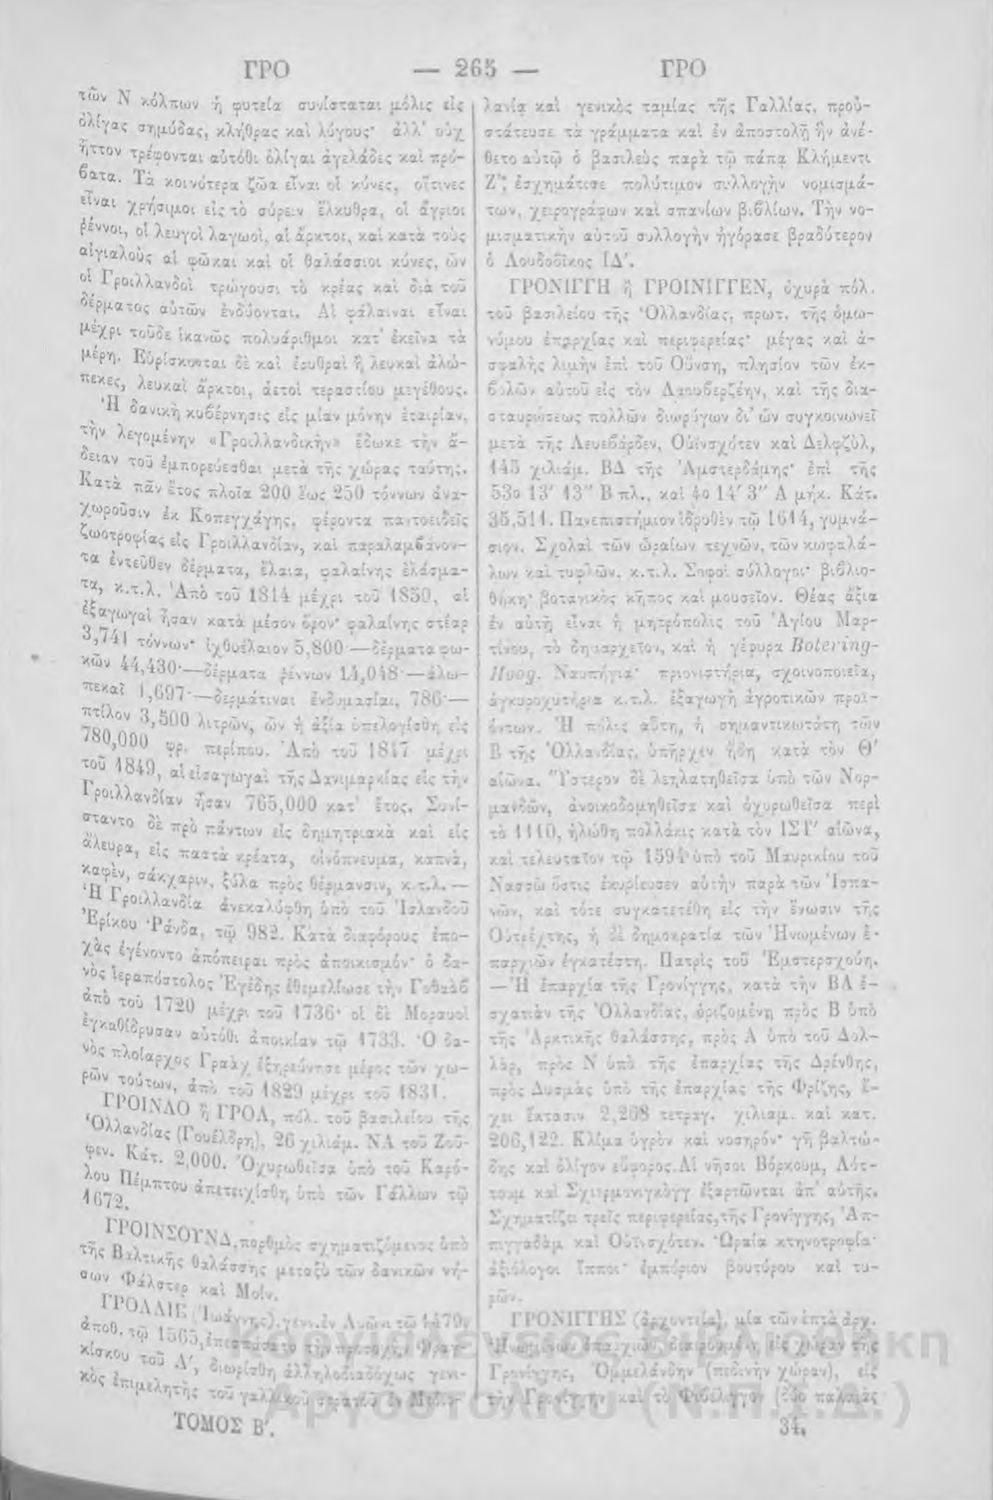 ΓΡΟ — 265 — ΓΡΟ
τῶν Ν κόλπων ἡ φυτεία συνίσταται μόλις εἰς
ὀλίγας σημύδας, κλήθρας καὶ λύγους· ἀλλ' οὐχ
ἧττον τρέφονται αὐτόθι ὀλίγαι ἀγελάδες καὶ πρό-
βατα. Τὰ κοινότερα ζῶα εἶναι οἱ κύνες, οἵτινες
εἶναι χρήσιμοι εἰς τὸ σύρειν ἕλκυθρα, οἱ ἄγριοι
ῥέννοι, οἱ λευγοὶ λαγωοὶ, αἱ ἄρκτοι, καὶ κατὰ τοὺς
αἰγιαλοὺς αἱ φῶκαι καὶ οἱ θαλάσσιοι κύνες, ὧν
οἱ Γροιλλανδοὶ τρώγουσι τὸ κρέας καὶ διὰ τοῦ
δέρματος αὐτῶν ἐνδύονται. Αἱ φάλαιναι εἶναι
μέχρι τοῦδε ἱκανῶς πολυάριθμοι κατ' ἐκεῖνα τὰ
μέρη. Εὑρίσκονται δὲ καὶ ἐρυθραὶ ἢ λευκαὶ ἀλώ-
πεκες, λευκαὶ ἄρκτοι, ἀετοὶ τεραστίου μεγέθους.
Ἡ δανικὴ κυβέρνησις εἰς μίαν μόνην ἑταιρίαν,
τὴν λεγομένην «Γροιλλανδικὴν» ἔδωκε τὴν ἄ-
δειαν τοῦ ἐμπορεύεσθαι μετὰ τῆς χώρας ταύτης.
Κατὰ πᾶν ἔτος πλοῖα 200 ἕως 250 τόννων ἀνα-
χωροῦσιν ἐκ Κοπεγχάγης, φέροντα παντοειδεῖς
ζωοτροφίας εἰς Γροιλλανδίαν, καὶ παραλαμβάνον-
τα ἐντεῦθεν δέρματα, ἔλαια, φαλαίνης ἐλάσμα-
τα, κ.τ.λ. Ἀπὸ τοῦ 1814 μέχρι τοῦ 1850, αἱ
ἐξαγωγαὶ ἦσαν κατὰ μέσον ὅρον· φαλαίνης στέαρ
3,741 τόννων· ἰχθυέλαιον 5,800·—δέρματα φω-
κῶν 44,430·—δέρματα ῥέννων 14,048·—ἀλω-
πεκαῖ 1,697·—δερμάτιναι ἐνδυμασίαι, 786·—
πτίλον 3,500 λιτρῶν, ὧν ἡ ἀξία ὑπελογίσθη εἰς
780,000 φρ. περίπου. Ἀπὸ τοῦ 1847 μέχρι
τοῦ 1849, αἱ εἰσαγωγαὶ τῆς Δανιμαρκίας εἰς τὴν
Γροιλλανδίαν ἦσαν 765,000 κατ' ἔτος. Συνί-
σταντο δὲ πρὸ πάντων εἰς δημητριακὰ καὶ εἰς
ἄλευρα, εἰς παστὰ κρέατα, οἰνόπνευμα, καπνὰ,
καφὲν, σάκχαριν, ξύλα πρὸς θέρμανσιν, κ.τ.λ.—
Ἡ Γροιλλανδία ἀνεκαλύφθη ὑπὸ τοῦ Ἰσλανδοῦ
Ἐρίκου Ῥάνδα, τῷ 982. Κατὰ διαφόρους ἐπο-
χὰς ἐγένοντο ἀπόπειραι πρὸς ἀποικισμόν· ὁ δα-
νὸς ἱεραπόστολος Ἐγέδης ἐθεμελίωσε τὴν Γοθαὰβ
ἀπὸ τοῦ 1720 μέχρι τοῦ 1736· οἱ δὲ Μοραυοὶ
ἐγκαθίδρυσαν αὐτόθι ἀποικίαν τῷ 1733. Ὁ δα-
νὸς πλοίαρχος Γραὰχ ἐξηρεύνησε μέρος τῶν χω-
ρῶν τούτων, ἀπὸ τοῦ 1829 μέχρι τοῦ 1831.
ΓΡΟΙΝΛΟ ἢ ΓΡΟΛ, πόλ. τοῦ βασιλείου τῆς
Ὁλλανδίας (Γουέλδρη), 26 χιλιάμ. ΝΑ τοῦ Ζοῦ-
φεν. Κάτ. 2,000. Ὀχυρωθεῖσα ὑπὸ τοῦ Καρό-
λου Πέμπτου ἀπετειχίσθη ὑπὸ τῶν Γάλλων τῷ
1672.
ΓΡΟΙΝΣΟΥΝΔ, πορθμὸς σχηματιζόμενος ὑπὸ
τῆς Βαλτικῆς θαλάσσης μεταξὺ τῶν δανικῶν νή-
σων Φάλστερ καὶ Μοέν.
ΓΡΟΛΛΙΕ (Ἰωάννης), γενν. ἐν Λυῶνι τῷ 1479,
ἀποθ. τῷ 1565, ἐπεσπάσατο τὴν προσοχὴν Φραγ-
κίσκου τοῦ Α', διωρίσθη ἀλληλοδιαδόχως γενι-
κὸς ἐπιμελητὴς τοῦ γαλλικοῦ στρατοῦ ἐν Μεδιο-
ΤΟΜΟΣ Β'.
λανία καὶ γενικὸς ταμίας τῆς Γαλλίας, προὐ-
στάτευσε τὰ γράμματα καὶ ἐν ἀποστολῇ ἣν ἀνέ-
θετο αὐτῷ ὁ βασιλεὺς παρὰ τῷ πάπᾳ Κλήμεντι
Ζ', ἐσχημάτισε πολύτιμον συλλογὴν νομισμά-
των, χειρογράφων καὶ σπανίων βιβλίων. Τὴν νο-
μισματικὴν αὐτοῦ συλλογὴν ἠγόρασε βραδύτερον
ὁ Λουδοβῖκος ΙΔ'.
ΓΡΟΝΙΓΓΗ ἢ ΓΡΟΙΝΙΓΓΕΝ, ὀχυρὰ πόλ.
τοῦ βασιλείου τῆς Ὁλλανδίας, πρωτ. τῆς ὁμω-
νύμου ἐπαρχίας καὶ περιφερείας· μέγας καὶ ἀ-
σφαλὴς λιμὴν ἐπὶ τοῦ Οὔνση, πλησίον τῶν ἐκ-
βολῶν αὐτοῦ εἰς τὸν Λαουβερζέην, καὶ τῆς δια-
σταυρώσεως πολλῶν διωρύγων δι' ὧν συγκοινωνεῖ
μετὰ τῆς Λευεβάρδεν, Οὐΐνσχότεν καὶ Δελφζὺλ,
145 χιλιάμ. ΒΔ τῆς Ἀμστερδάμης· ἐπὶ τῆς
53ο 13' 13" Β πλ., καὶ 4ο 14' 3" Α μήκ. Κάτ.
35,511. Πανεπιστήμιον ἱδρυθὲν τῷ 1614, γυμνά-
σιον. Σχολαὶ τῶν ὡραίων τεχνῶν, τῶν κωφαλά-
λων καὶ τυφλῶν, κ.τ.λ. Σοφοὶ σύλλογοι· βιβλιο-
θήκη· βοτανικὸς κῆπος καὶ μουσεῖον. Θέας ἄξια
ἐν αὐτῇ εἶναι ἡ μητρόπολις τοῦ Ἁγίου Μαρ-
τίνου, τὸ δημαρχεῖον, καὶ ἡ γέφυρα Botering-
Hoog. Ναυπήγια· πριονιστήρια, σχοινοποιεῖα,
ἀγκυροχυτήρια κ.τ.λ. ἐξαγωγὴ ἀγροτικῶν προϊ-
όντων. Ἡ πόλις αὕτη, ἡ σημαντικωτάτη τῶν
Β τῆς Ὁλλανδίας, ὑπῆρχεν ἤδη κατὰ τὸν Θ'
αἰῶνα. Ὕστερον δὲ λεηλατηθεῖσα ὑπὸ τῶν Νορ-
μανδῶν, ἀνοικοδομηθεῖσα καὶ ὀχυρωθεῖσα περὶ
τὸ 1110, ἡλώθη πολλάκις κατὰ τὸν ΙΣΤ' αἰῶνα,
καὶ τελευταῖον τῷ 1594 ὑπὸ τοῦ Μαυρικίου τοῦ
Νασσῶ ὅστις ἐκυρίευσεν αὐτὴν παρὰ τῶν Ἱσπα-
νῶν, καὶ τότε συγκατετέθη εἰς τὴν ἕνωσιν τῆς
Οὐτρέχτης, ἡ δὲ δημοκρατία τῶν Ἡνωμένων ἐ-
παρχιῶν ἐγκατέστη. Πατρὶς τοῦ Ἑμστερσχούη.
—Ἡ ἐπαρχία τῆς Γρονίγγης, κατὰ τὴν ΒΑ ἐ-
σχατιὰν τῆς Ὁλλανδίας, ὁριζομένη πρὸς Β ὑπὸ
τῆς Ἀρκτικῆς θαλάσσης, πρὸς Α ὑπὸ τοῦ Δολ-
λὰρ, πρὸς Ν ὑπὸ τῆς ἐπαρχίας τῆς Δρένθης,
πρὸς Δυσμὰς ὑπὸ τῆς ἐπαρχίας τῆς Φρίζης, ἔ-
χει ἔκτασιν 2,268 τετραγ. χιλιαμ. καὶ κατ.
206,122. Κλῖμα ὑγρὸν καὶ νοσηρόν· γῆ βαλτώ-
δης καὶ ὀλίγον εὔφορος. Αἱ νῆσοι Βόρκουμ, Λότ-
τουμ καὶ Σχιερμονιγκὸγγ ἐξαρτῶνται ἀπ' αὐτῆς.
Σχηματίζει τρεῖς περιφερείας, τῆς Γρονίγγης, Ἀπ-
πιγγαδὰμ καὶ Οὐΐνσχότεν. Ὡραία κτηνοτροφία·
ἀξιόλογοι ἵπποι· ἐμπόριον βουτύρου καὶ τυ-
ρῶν.
ΓΡΟΝΙΓΓΗΣ (ἀρχοντεία), μία τῶν ἑπτὰ ἀρχ.
Ἡνωμένων ἐπαρχιῶν, διαιρουμένη εἰς χώραν τῆς
Γρονίγγης, Ὀμμελάνδην (πεδινὴν χώραν), εἰς
τὴν Γρονίγγην καὶ τὸ Φιβέλιγγον (δύο παλαιὰς
34.
Κοργιαλένειος Βιβλιοθήκη
Αργοστολίου (Ν.Π.Ι.Δ.)